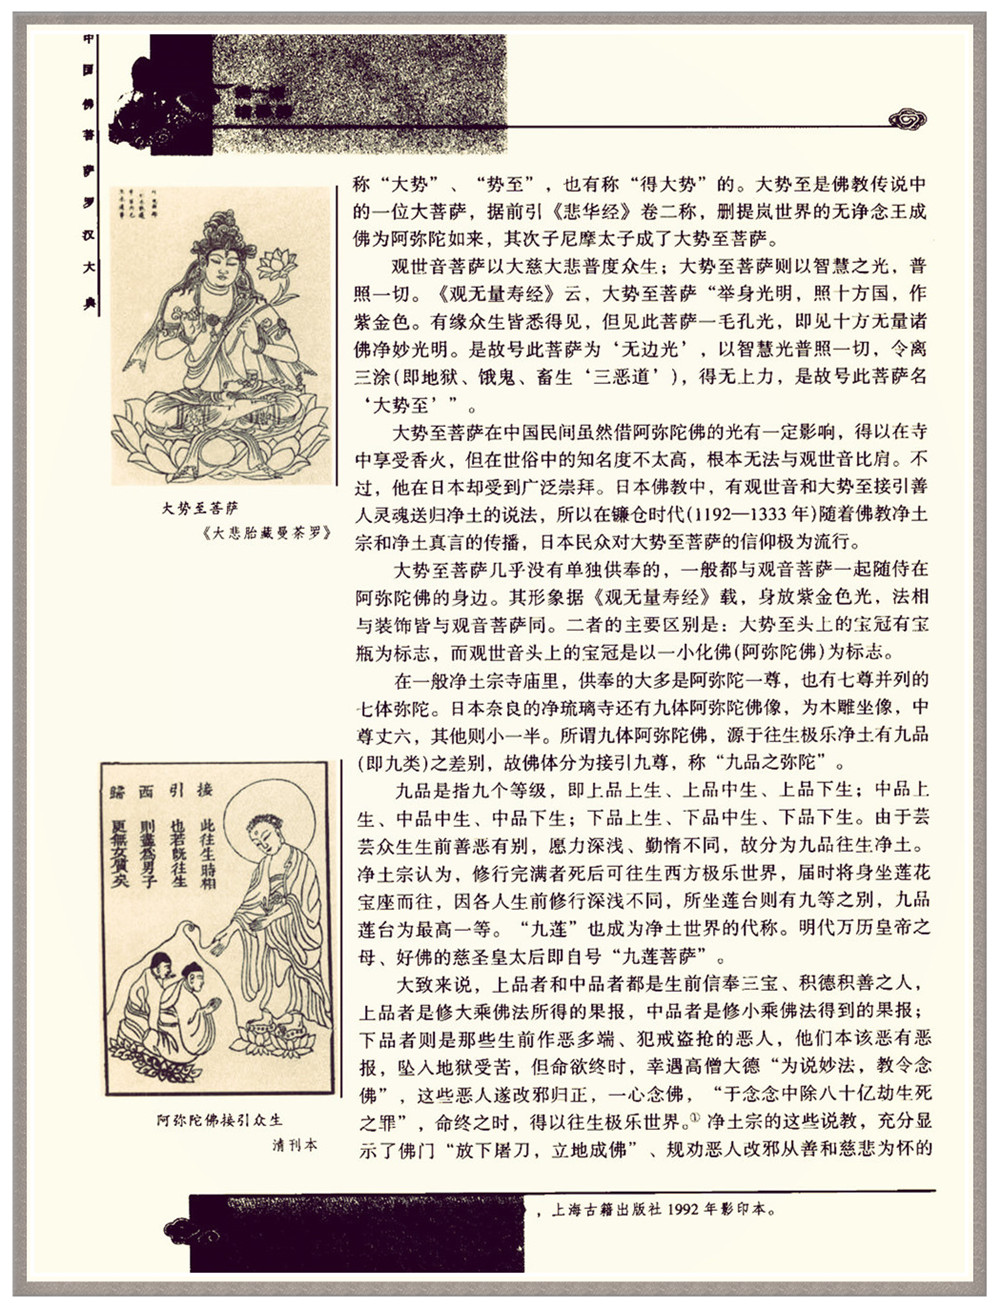 中国佛菩萨罗汉大典
称“大势”、“势至”，也有称“得大势”的。大势至是佛教传说中
的一位大菩萨，据前引《悲华经》卷二称，删提岚世界的无诤念王成
佛为阿弥陀如来，其次子尼摩太子成了大势至菩萨。
观世音菩萨以大慈大悲普度众生；大势至菩萨则以智慧之光，普
照一切。《观无量寿经》云，大势至菩萨“举身光明，照十方国，作
紫金色。有缘众生皆悉得见，但见此菩萨一毛孔光，即见十方无量诸
佛净妙光明。是故号此菩萨为‘无边光’，以智慧光普照一切，令离
三涂(即地狱、饿鬼、畜生‘三恶道’)，得无上力，是故号此菩萨名
‘大势至’”。
大势至菩萨在中国民间虽然借阿弥陀佛的光有一定影响，得以在寺
中享受香火，但在世俗中的知名度不太高，根本无法与观世音比肩。不
过，他在日本却受到广泛崇拜。日本佛教中，有观世音和大势至接引善
人灵魂送归净土的说法，所以在镰仓时代(1192—1333年)随着佛教净土
宗和净土真言的传播，日本民众对大势至菩萨的信仰极为流行。
大势至菩萨几乎没有单独供奉的，一般都与观音菩萨一起随侍在
阿弥陀佛的身边。其形象据《观无量寿经》载，身放紫金色光，法相
与装饰皆与观音菩萨同。二者的主要区别是：大势至头上的宝冠有宝
瓶为标志，而观世音头上的宝冠是以一小化佛(阿弥陀佛)为标志。
在一般净土宗寺庙里，供奉的大多是阿弥陀一尊，也有七尊并列的
七体弥陀。日本奈良的净琉璃寺还有九体阿弥陀佛像，为木雕坐像，中
尊丈六，其他则小一半。所谓九体阿弥陀佛，源于往生极乐净土有九品
(即九类)之差别，故佛体分为接引九尊，称“九品之弥陀”。
九品是指九个等级，即上品上生、上品中生、上品下生；中品上
生、中品中生、中品下生；下品上生、下品中生、下品下生。由于芸
芸众生生前善恶有别，愿力深浅、勤惰不同，故分为九品往生净土。
净土宗认为，修行完满者死后可往生西方极乐世界，届时将身坐莲花
宝座而往，因各人生前修行深浅不同，所坐莲台则有九等之别，九品
莲台为最高一等。“九莲”也成为净土世界的代称。明代万历皇帝之
母、好佛的慈圣皇太后即自号“九莲菩萨”。
大致来说，上品者和中品者都是生前信奉三宝、积德积善之人，
上品者是修大乘佛法所得的果报，中品者是修小乘佛法得到的果报；
下品者则是那些生前作恶多端、犯戒盗抢的恶人，他们本该恶有恶
报，坠入地狱受苦，但命欲终时，幸遇高僧大德“为说妙法，教令念
佛”，这些恶人遂改邪归正，一心念佛，“于念念中除八十亿劫生死
之罪”，命终之时，得以往生极乐世界。① 净土宗的这些说教，充分显
示了佛门“放下屠刀，立地成佛”、规劝恶人改邪从善和慈悲为怀的
大势至菩萨
《大悲胎藏曼荼罗》
接引西歸
此往生時相
也若既往生
則盡為男子
更無女質矣
阿弥陀佛接引众生
清刊本
，上海古籍出版社1992年影印本。